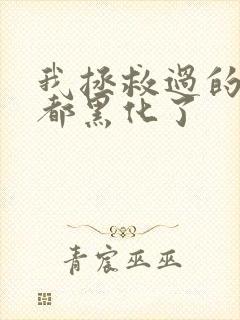 我拯救过的
都黑化了
青宸巫巫